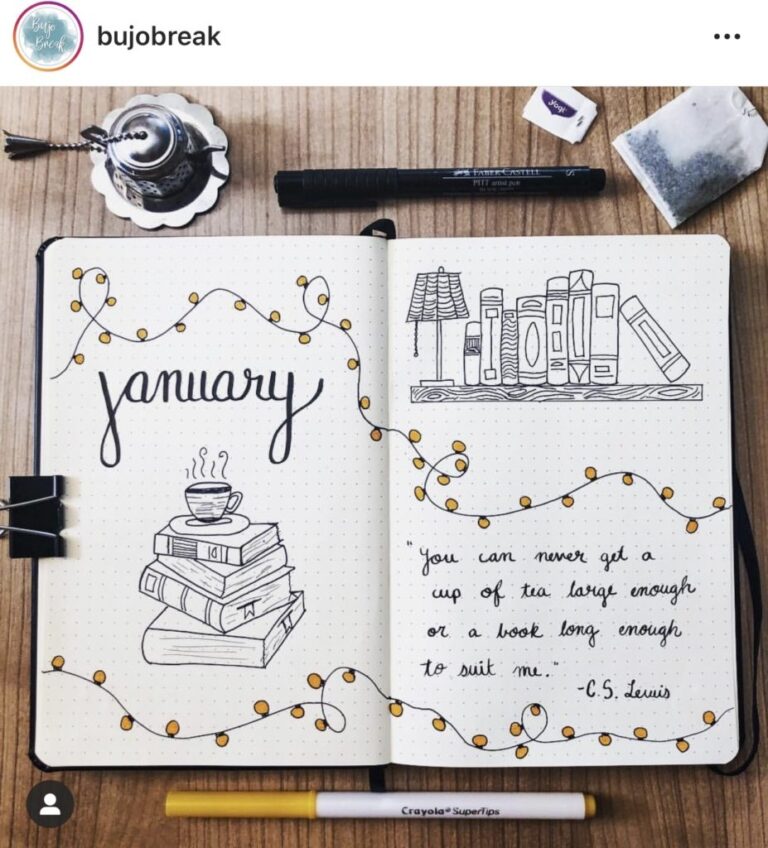 Bujo
Break
bujobreak
yogi
FABER-CASTELL
PITT artist pen
S
january
"You can never get a
cup of tea large enough
or a book long enough
to suit me."
-C.S. Lewis
Crayola SuperTips